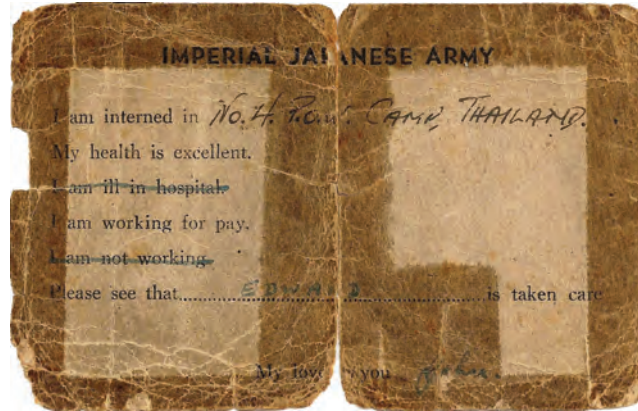 IMPERIAL JAPANESE ARMY
I am interned in No. 4. P.O.W. CAMP, THAILAND.
My health is excellent.
I am ill in hospital.
I am working for pay.
I am not working.
Please see that EDWARD is taken care
My love to you John.